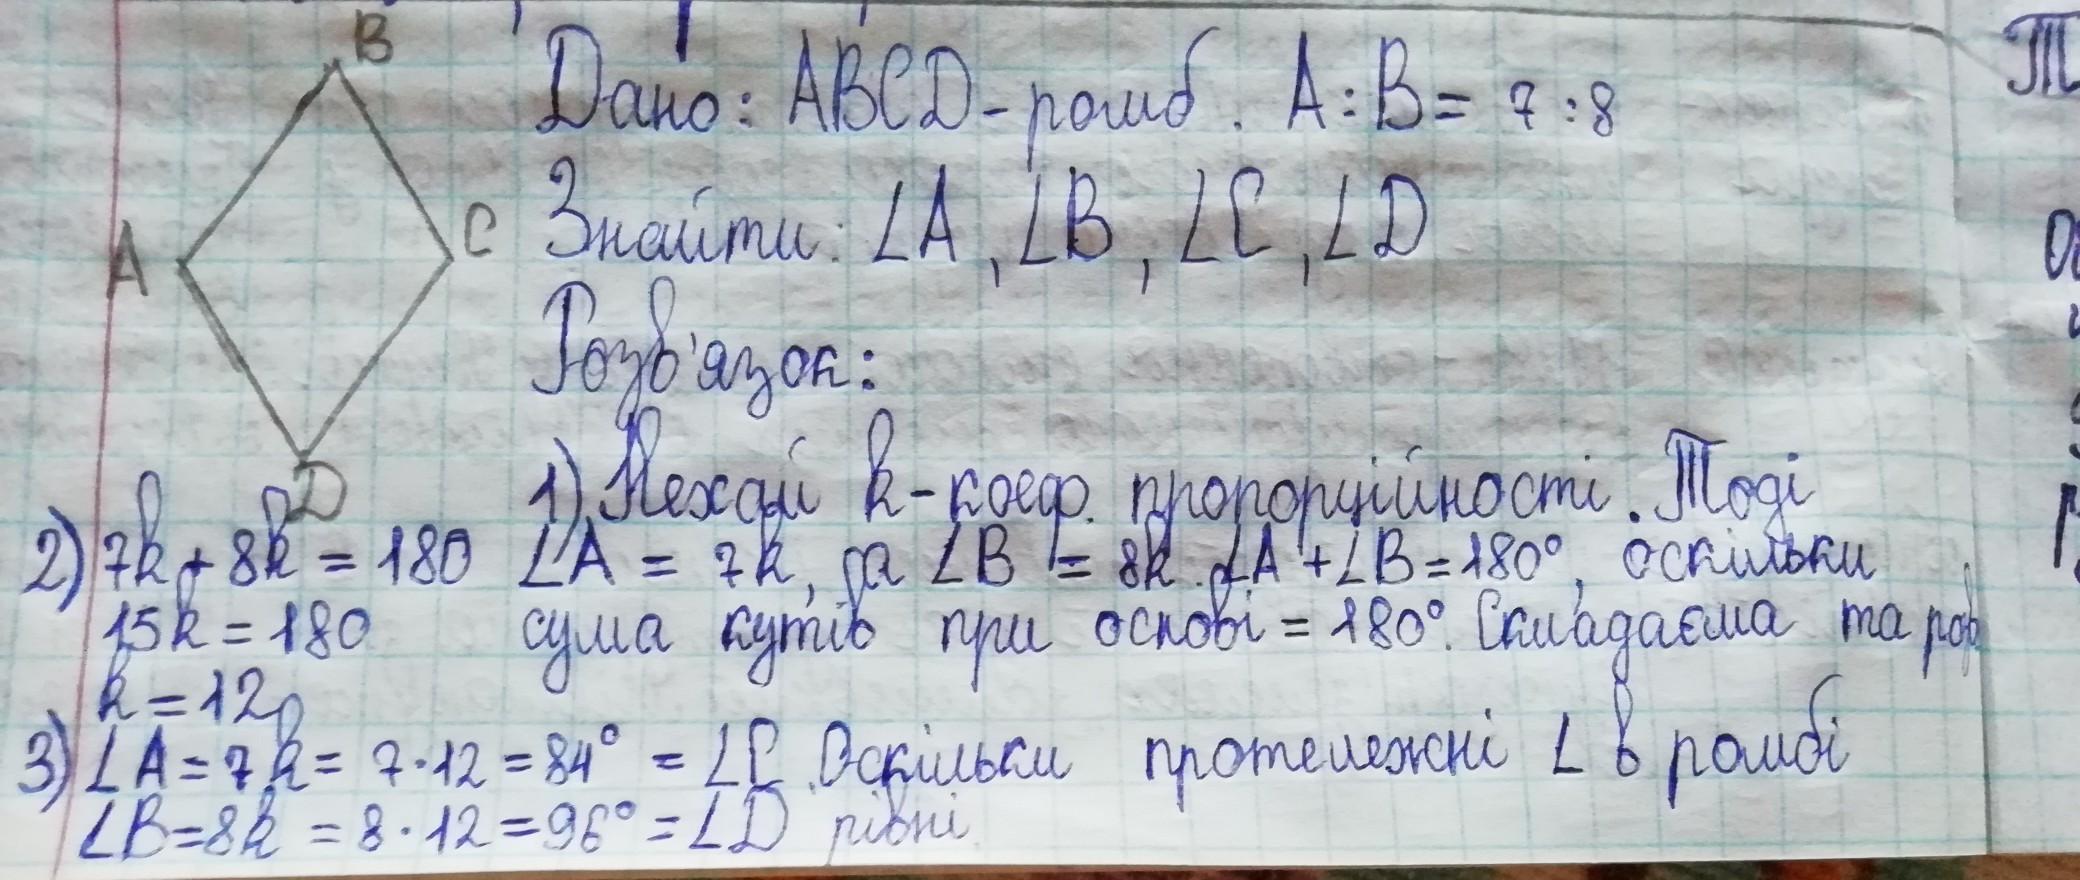 B
A
C
D
Дано: ABCD - ромб. A:B = 7:8
Знайти: ∠A, ∠B, ∠C, ∠D
Розв'язок:
1) Нехай k - коеф. пропорційності. Тоді
∠A = 7k, а ∠B = 8k. ∠A + ∠B = 180°, оскільки
сума кутів при основі = 180°. Складаєма та роз
2) 7k + 8k = 180
15k = 180
k = 12
3) ∠A = 7k = 7·12 = 84° = ∠C. Оскільки протележні ∠ в ромбі
∠B = 8k = 8·12 = 96° = ∠D рівні.